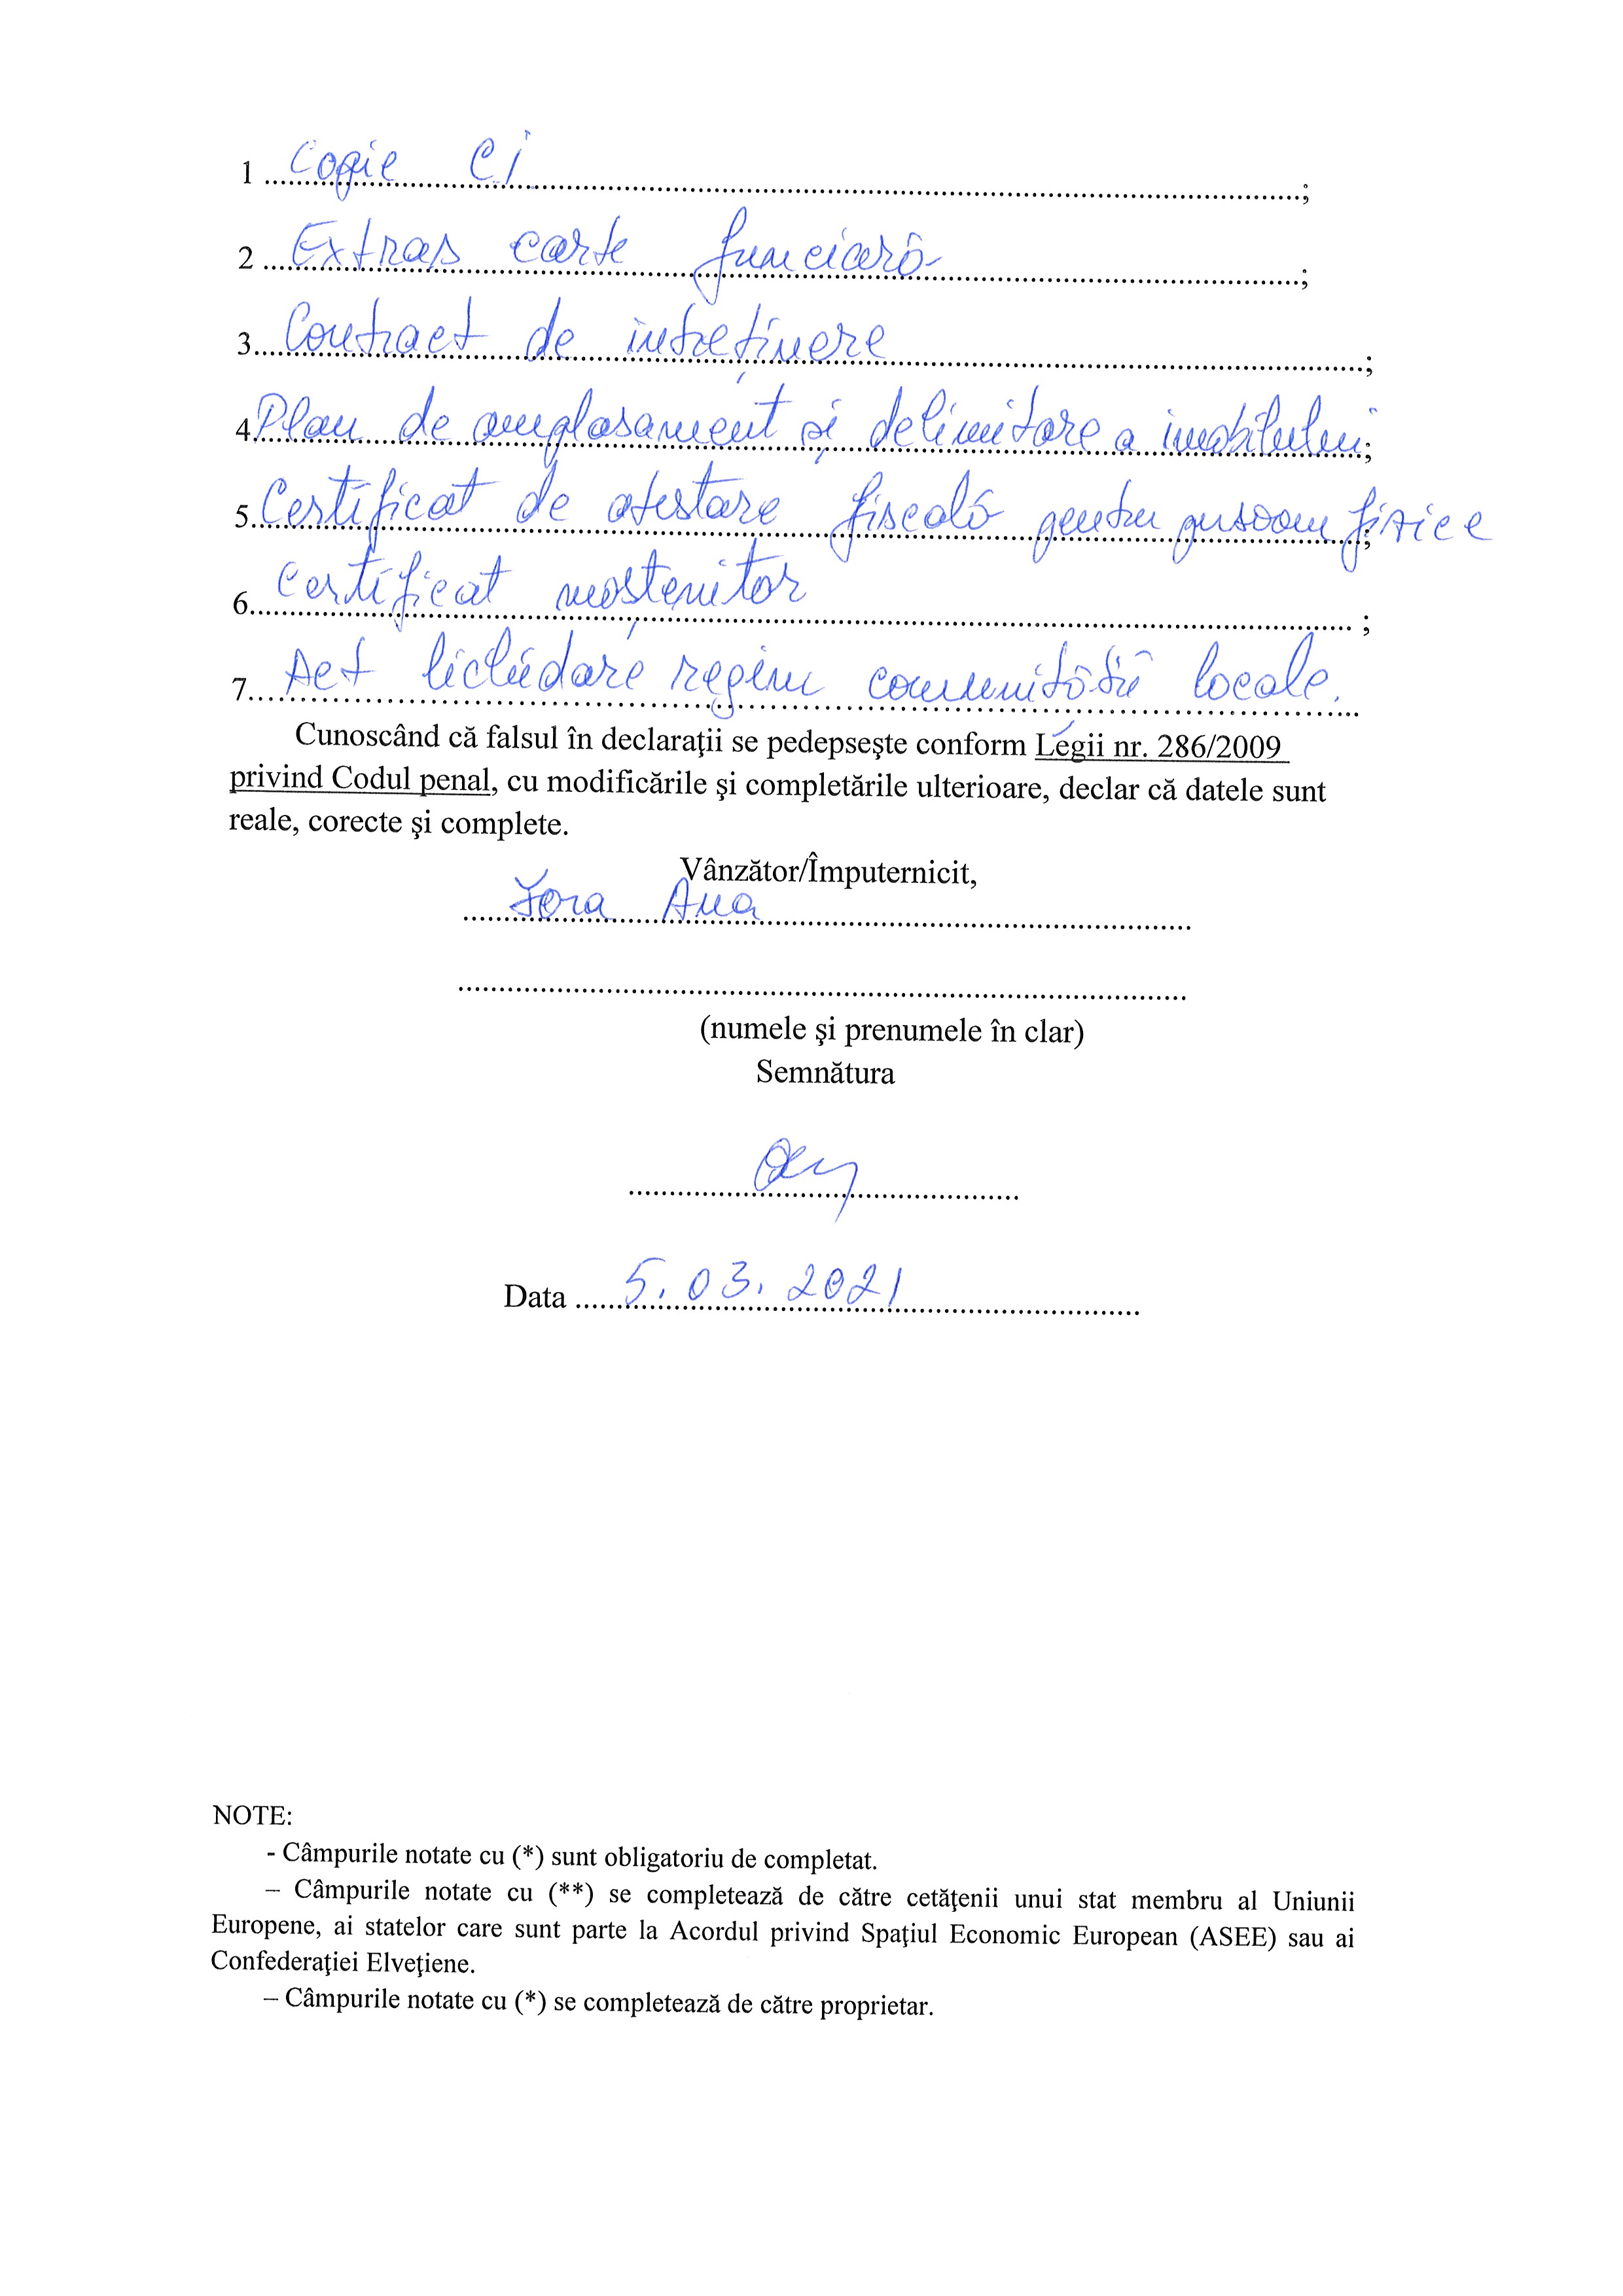 1 Copie CI ;
2 Extras carte funciară ;
3. Contract de întreținere ;
4. Plan de amplasament și delimitare a imobilului ;
5. Certificat de atestare fiscală pentru persoane fizice ;
6. Certificat moștenitor ;
7. Act lichidare regim comunității locale.
Cunoscând că falsul în declaraţii se pedepseşte conform Legii nr. 286/2009
privind Codul penal, cu modificările şi completările ulterioare, declar că datele sunt
reale, corecte şi complete.
Vânzător/Împuternicit,
Ana
(numele şi prenumele în clar)
Semnătura
Data 5.03.2021
NOTE:
- Câmpurile notate cu (*) sunt obligatoriu de completat.
– Câmpurile notate cu (**) se completează de către cetăţenii unui stat membru al Uniunii
Europene, ai statelor care sunt parte la Acordul privind Spaţiul Economic European (ASEE) sau ai
Confederaţiei Elveţiene.
– Câmpurile notate cu (*) se completează de către proprietar.